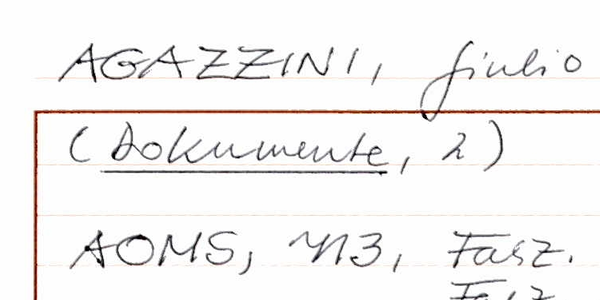 AGAZZINI, Giulio
(Dokumente, 2)
AOMS, 413, Fasz.
Fasz